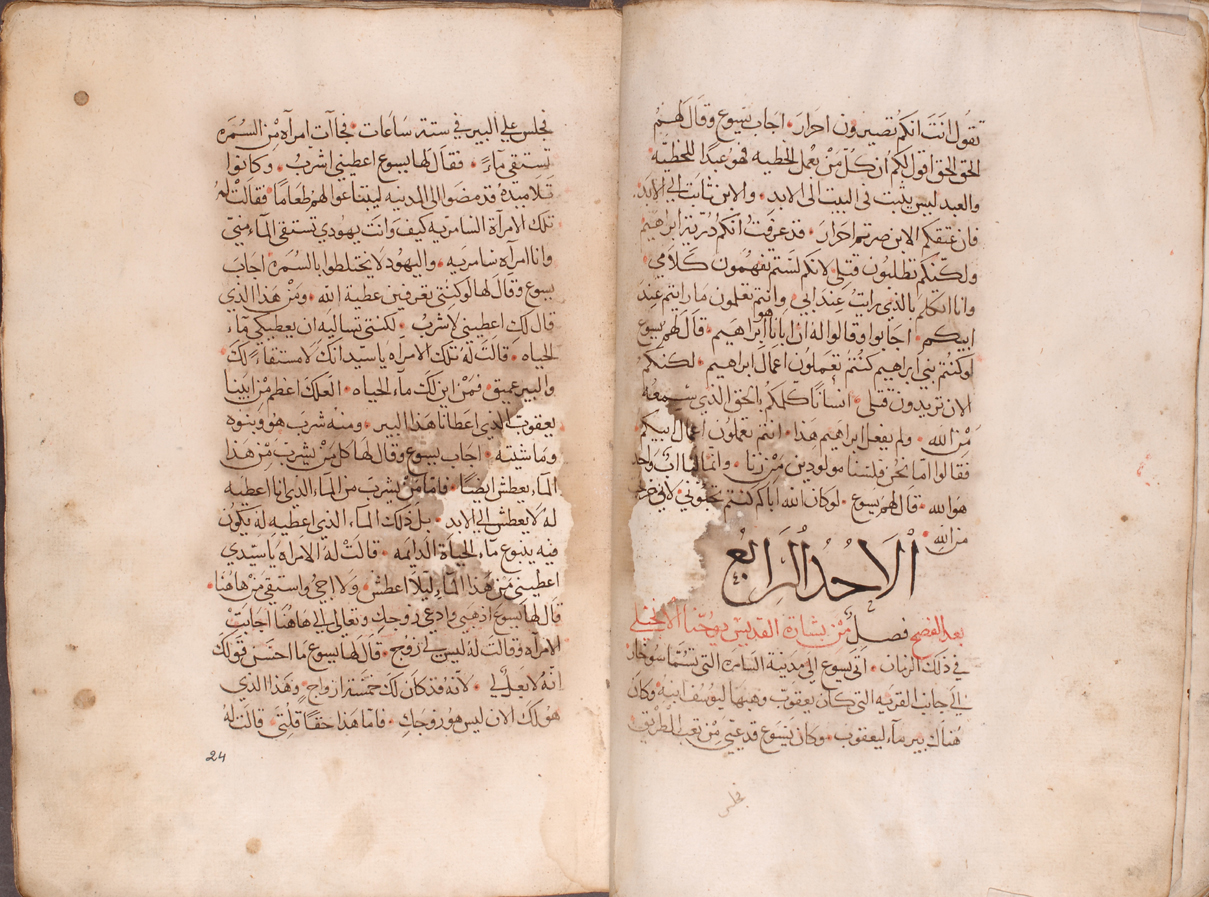 تقول انت انكم تصيرون احرار • اجاب يسوع وقال لهم
الحق الحق اقول لكم ان كل من يعمل الخطيه فهو عبدًا للخطيّه
والعبد ليس يثبت في البيت الى الابد • والابن ثابت الى الابد •
فان عتقكم الابن صرتم احرار • قد عرفت انكم ذرّية ابراهيم
ولكنكم تطلبون قتلي لانكم لستم تفهمون كلامي •
وانا اتكلم بالذي رايت عند ابي • وانتم تعملون ما رايتم عند
ابيكم • اجابوا وقالوا له ان ابانا هو ابراهيم • قال لهم يسوع
لو كنتم بني ابراهيم كنتم تعملون اعمال ابراهيم • لكنكم
الان تريدون قتلي • انسانًا كلمكم بالحق الذي سمعه
من الله • ولم يفعل ابراهيم هذا • انتم تعملون اعمال ابيكم •
فقالوا امّا نحن فلسنا مولودين من زنا • وانما لنا اب واحد
هو الله • قال لهم يسوع • لو كان الله اباكم كنتم تحبوني • لاني خرجت
من الله •
الاحد الرابع
بعد الفصح فصل من بشارة القديس يوحنا الانجيلي
في ذلك الزمان • اتى يسوع الى مدينة السامرة التي تسمّا سوخار
الى جانب القريه التي كان يعقوب وهبها ليوسف ابنه • وكان
هناك بير مآء ليعقوب • وكان يسوع قد عيي من تعب الطريق
فجلس
فجلس على البير في ستة ساعات • فجاآت امرآه من السمره
تستقي مآءً • فقال لها يسوع اعطيني اشرب • وكانوا
تلاميذه قد مضوا الى المدينه ليبتاعوا لهم طعامًا فقالت له
تلك الامرآة السامريه كيف وانت يهودي تستقي المآء منّي
وانا امرآه سامريه • واليهود لا يختلطوا بالسمره اجاب
يسوع وقال لها لو كنتي تعرفين عطية الله • ومن هذا الذي
قال لك اعطيني لاشرب • لكنتي تساليه ان يعطيكي مآء
الحياه • قالت له تلك الامرآه يا سيد انك لا مستقا لك
والبير عميق • فمن اين لك مآء الحياه • العلك اعظم من ابينا
يعقوب الذي اعطانا هذا البير • ومنه شرب هو وبنوه
وماشيته • اجاب يسوع وقال لها كل من يشرب من هذا
المآء يعطش ايضًا • فامّا من يشرب من المآء الذي انا اعطيه
له لا يعطش الى الابد • بل ذلك المآء الذي اعطيه له يكون
فيه ينبوع مآء الحياة الدايمه • قالت له الامراه يا سيدي
اعطيني من هذا المآء ليلا اعطش • ولا اجي واستقي من هاهنا •
قال لها يسوع اذهبي وادعي زوجك وتعالي الى هاهنا اجابت
الامراه وقالت له ليس لي زوج • قال لها يسوع ما احسن قولك
انّه لا بعل لي • لانه قد كان لك خمسة ازواج • وهذا الذي
هو لك الان ليس هو زوجك • فامّا هذا حقًا قلتي • قالت له
24